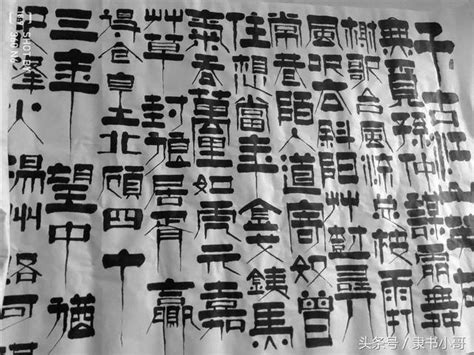 千古江山
無覓孫仲謀處舞
榭歌台風流总被雨
風吹去斜陽艸樹尋
常巷陌人道寄奴曾
住想當年金戈鐵馬
氣吞萬里如虎元嘉
艸草封狼居胥贏
得仓皇北顧四十
三年望中猶
烽火揚州路可
SHOT ON
头条号 / 隶书小哥